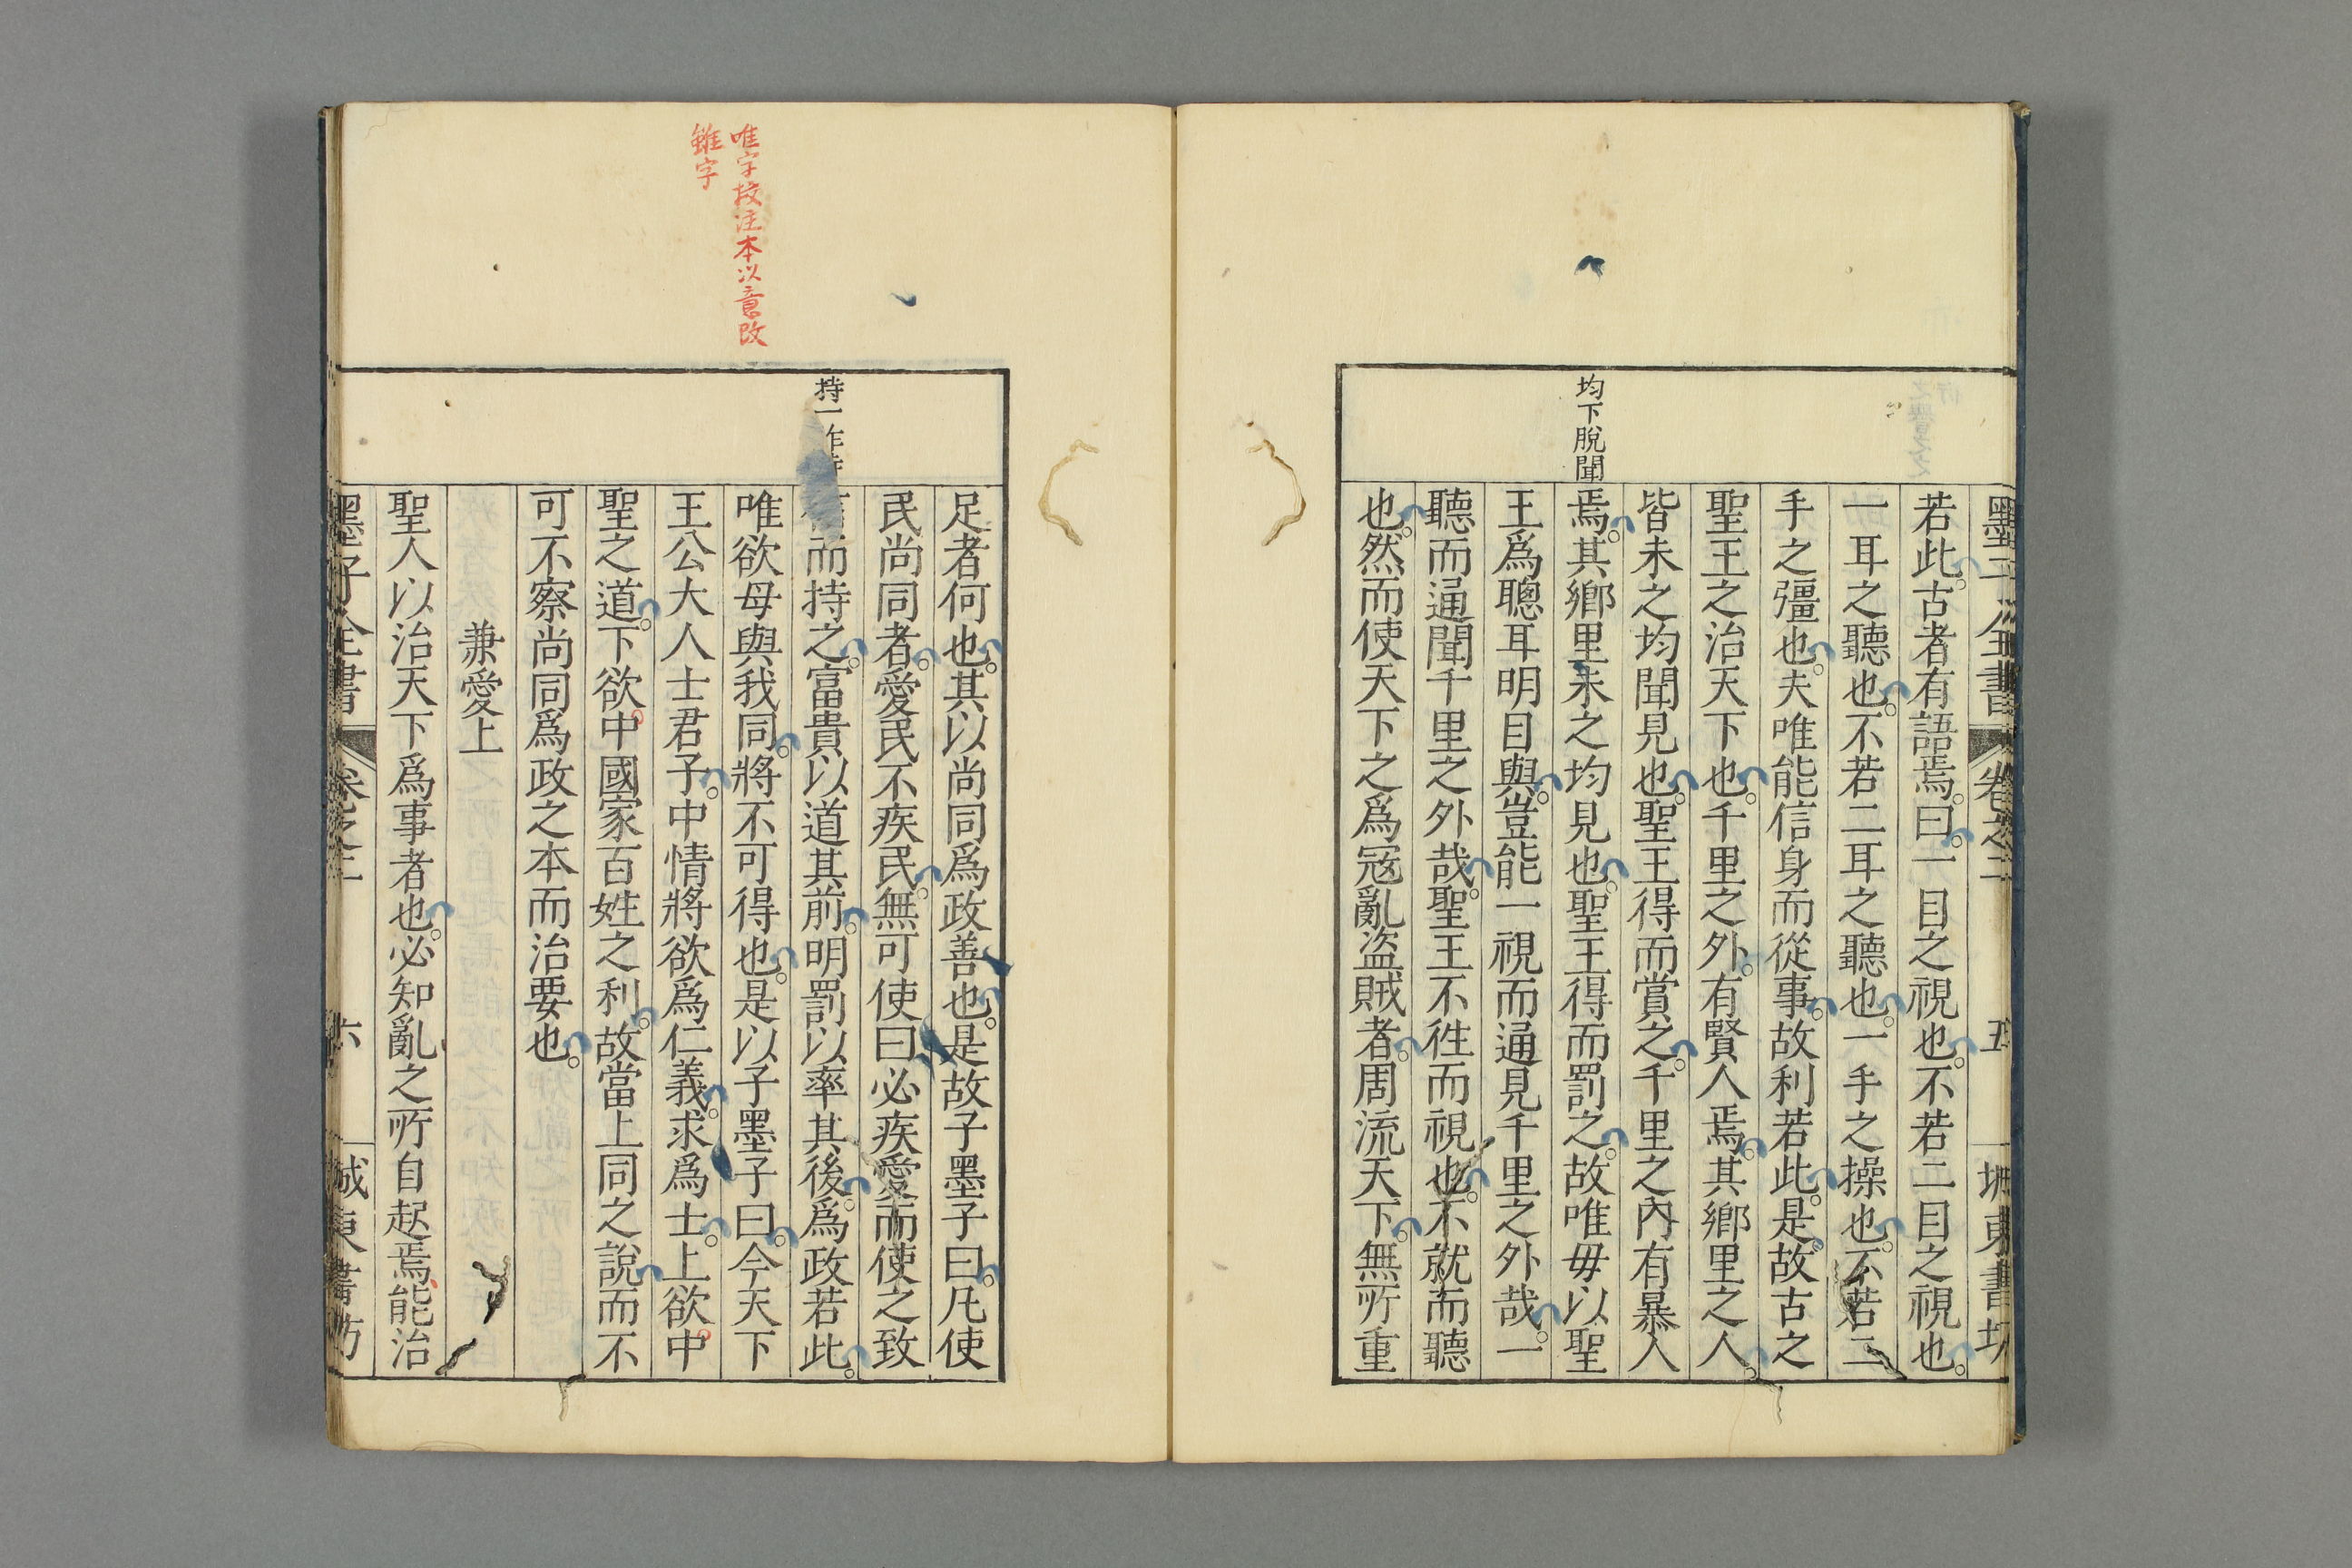 墨子全書 卷之二 五 堀東書坊
若此。古者有語焉。曰。一目之視也。不若二目之視也。
一耳之聽也。不若二耳之聽也。一手之操也。不若二
手之彊也。夫唯能信身而從事。故利若此。是故古之
聖王之治天下也。千里之外。有賢人焉。其鄉里之人。
皆未之均聞見也。聖王得而賞之。千里之內有暴人
均下脫聞
焉。其鄉里未之均見也。聖王得而罰之。故唯毋以聖
王爲聰耳明目與。豈能一視而通見千里之外哉。一
聽而通聞千里之外哉。聖王不徃而視也。不就而聽
也。然而使天下之爲寇亂盜賊者。周流天下。無所重
足者何也。其以尚同爲政善也。是故子墨子曰。凡使
民尚同者。愛民不疾民。無可使曰必疾愛而使之致
持一作
而持之。富貴以道其前。明罰以率其後。爲政若此。
唯字校注本以意改
雖字
唯欲毋與我同。將不可得也。是以子墨子曰。今天下
王公大人士君子。中情將欲爲仁義。求爲士。上欲中
聖之道。下欲中國家百姓之利。故當上同之說而不
可不察尚同爲政之本而治要也。
兼愛上
聖人以治天下爲事者也。必知亂之所自起焉能治
墨子全書 卷之二 六 東書坊